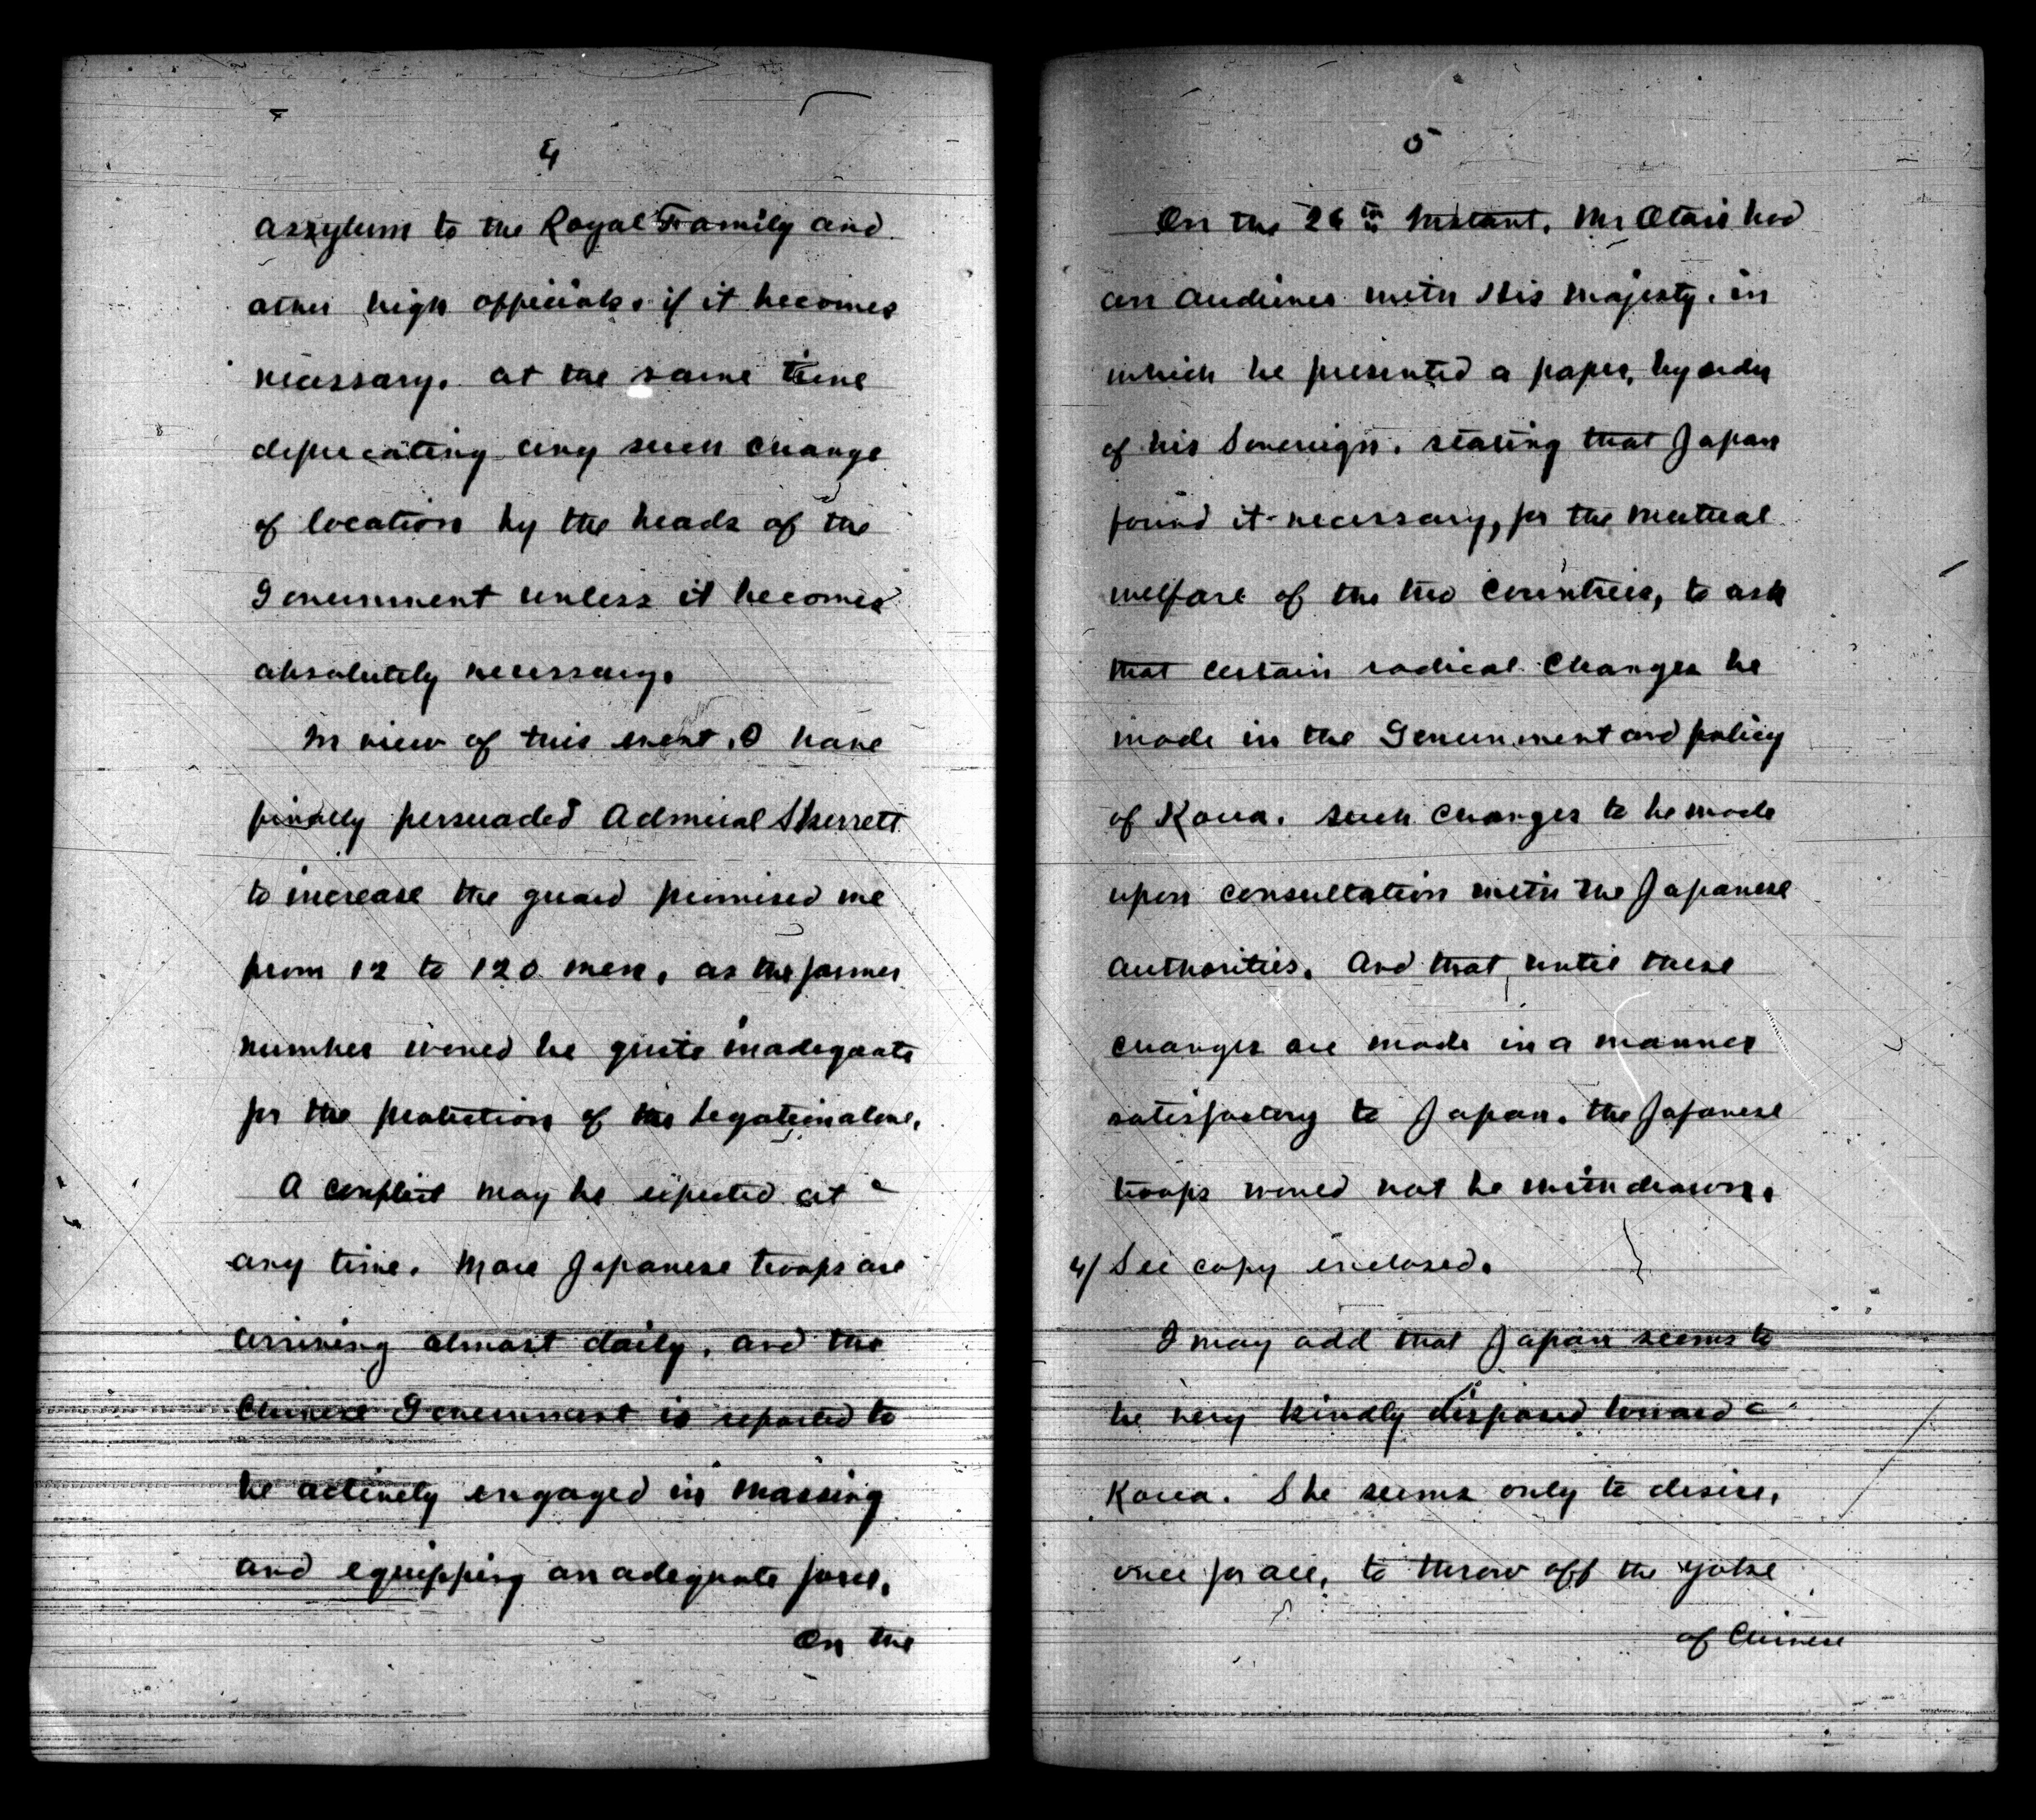 4
aszylum to the Royal Family and
other high officials, if it becomes
necessary. at the same time
deprecating any such change
of location by the heads of the
Government unless it becomes
absolutely necessary.
In view of this event, I have
finally persuaded Admiral Skerrett
to increase the guard promised me
from 12 to 120 men, as the former
number would be quite inadequate
for the protection of the Legation alone.
A conflict may be expected at
any time. More Japanese troops are
arriving almost daily, and the
Chinese Government is reported to
be actively engaged in massing
and equipping an adequate force.
On the
5
On the 26th Instant, Mr Otori had
an Audience with His Majesty, in
which he presented a paper, by order
of his Sovereign, stating that Japan
found it necessary, for the mutual
welfare of the two Countries, to ask
that certain radical Changes be
made in the Government and policy
of Korea. such changes to be made
upon consultation with the Japanese
authorities. And that, until these
changes are made in a manner
satisfactory to Japan, the Japanese
troops would not be withdrawn.
4/ See copy enclosed.
I may add that Japan seems to
be very kindly disposed toward
Korea. She seems only to desire,
once for all, to throw off the yoke
of Chinese